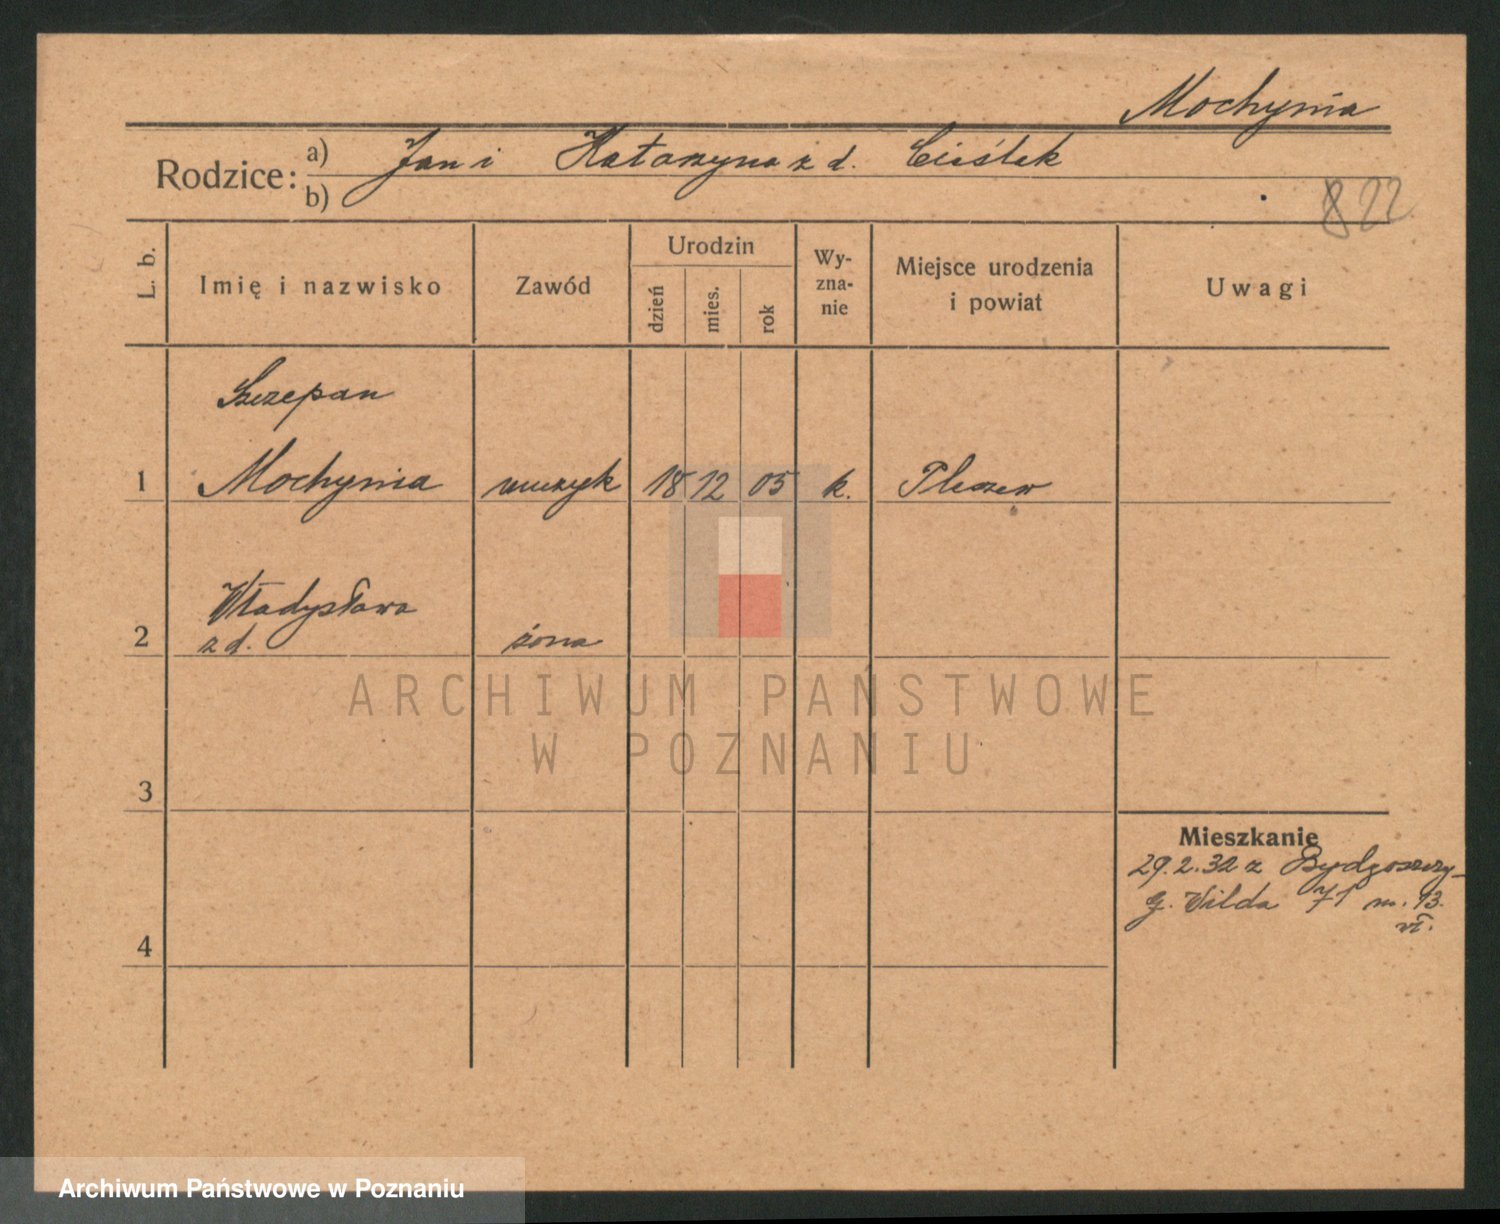 Mochynia
Rodzice: a) Jan i Katarzyna z d. Cieślak
b)
822
L. b.
Imię i nazwisko
Zawód
Urodzin
dzień
mies.
rok
Wy-
zna-
nie
Miejsce urodzenia
i powiat
Uwagi
Szczepan
1 Mochynia muzyk 18 12 05 k. Pleszew
Władysława
2 z d. żona
ARCHIWUM PAŃSTWOWE
W POZNANIU
3
Mieszkanie
29.2.32 z Bydgoszczy
G. Wilda 71 m. 13.
wł.
4
Archiwum Państwowe w Poznaniu